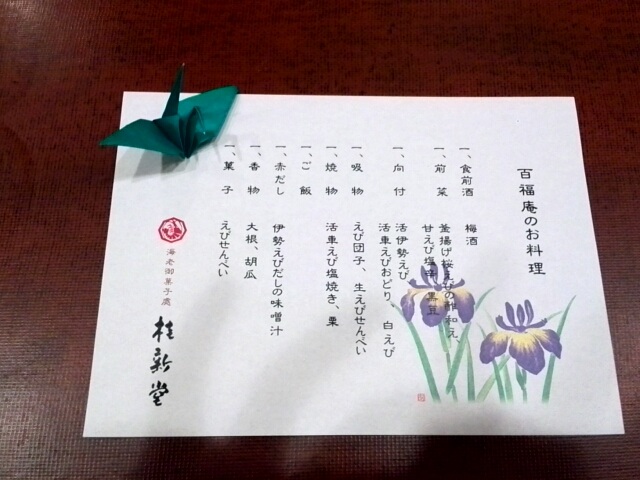 百福庵のお料理
一、食前酒　梅酒
一、前菜　釜揚げ桜えびの酢和え、
甘えび塩辛、黒豆
一、向付　活伊勢えび
活車えびおどり、白えび
一、吸物　えび団子、生えびせんべい
一、焼物　活車えび塩焼き、栗
一、ご飯
一、赤だし　伊勢えびだしの味噌汁
一、香物　大根、胡瓜
一、菓子　えびせんべい
海老御菓子處
桂新堂